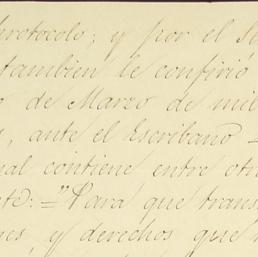 protocolo; y por el Se
tambien le confirió
o de Marzo de mil
s, ante el Escribano
ual contiene entre otr
te: =" Para que trans
nes, y derechos que